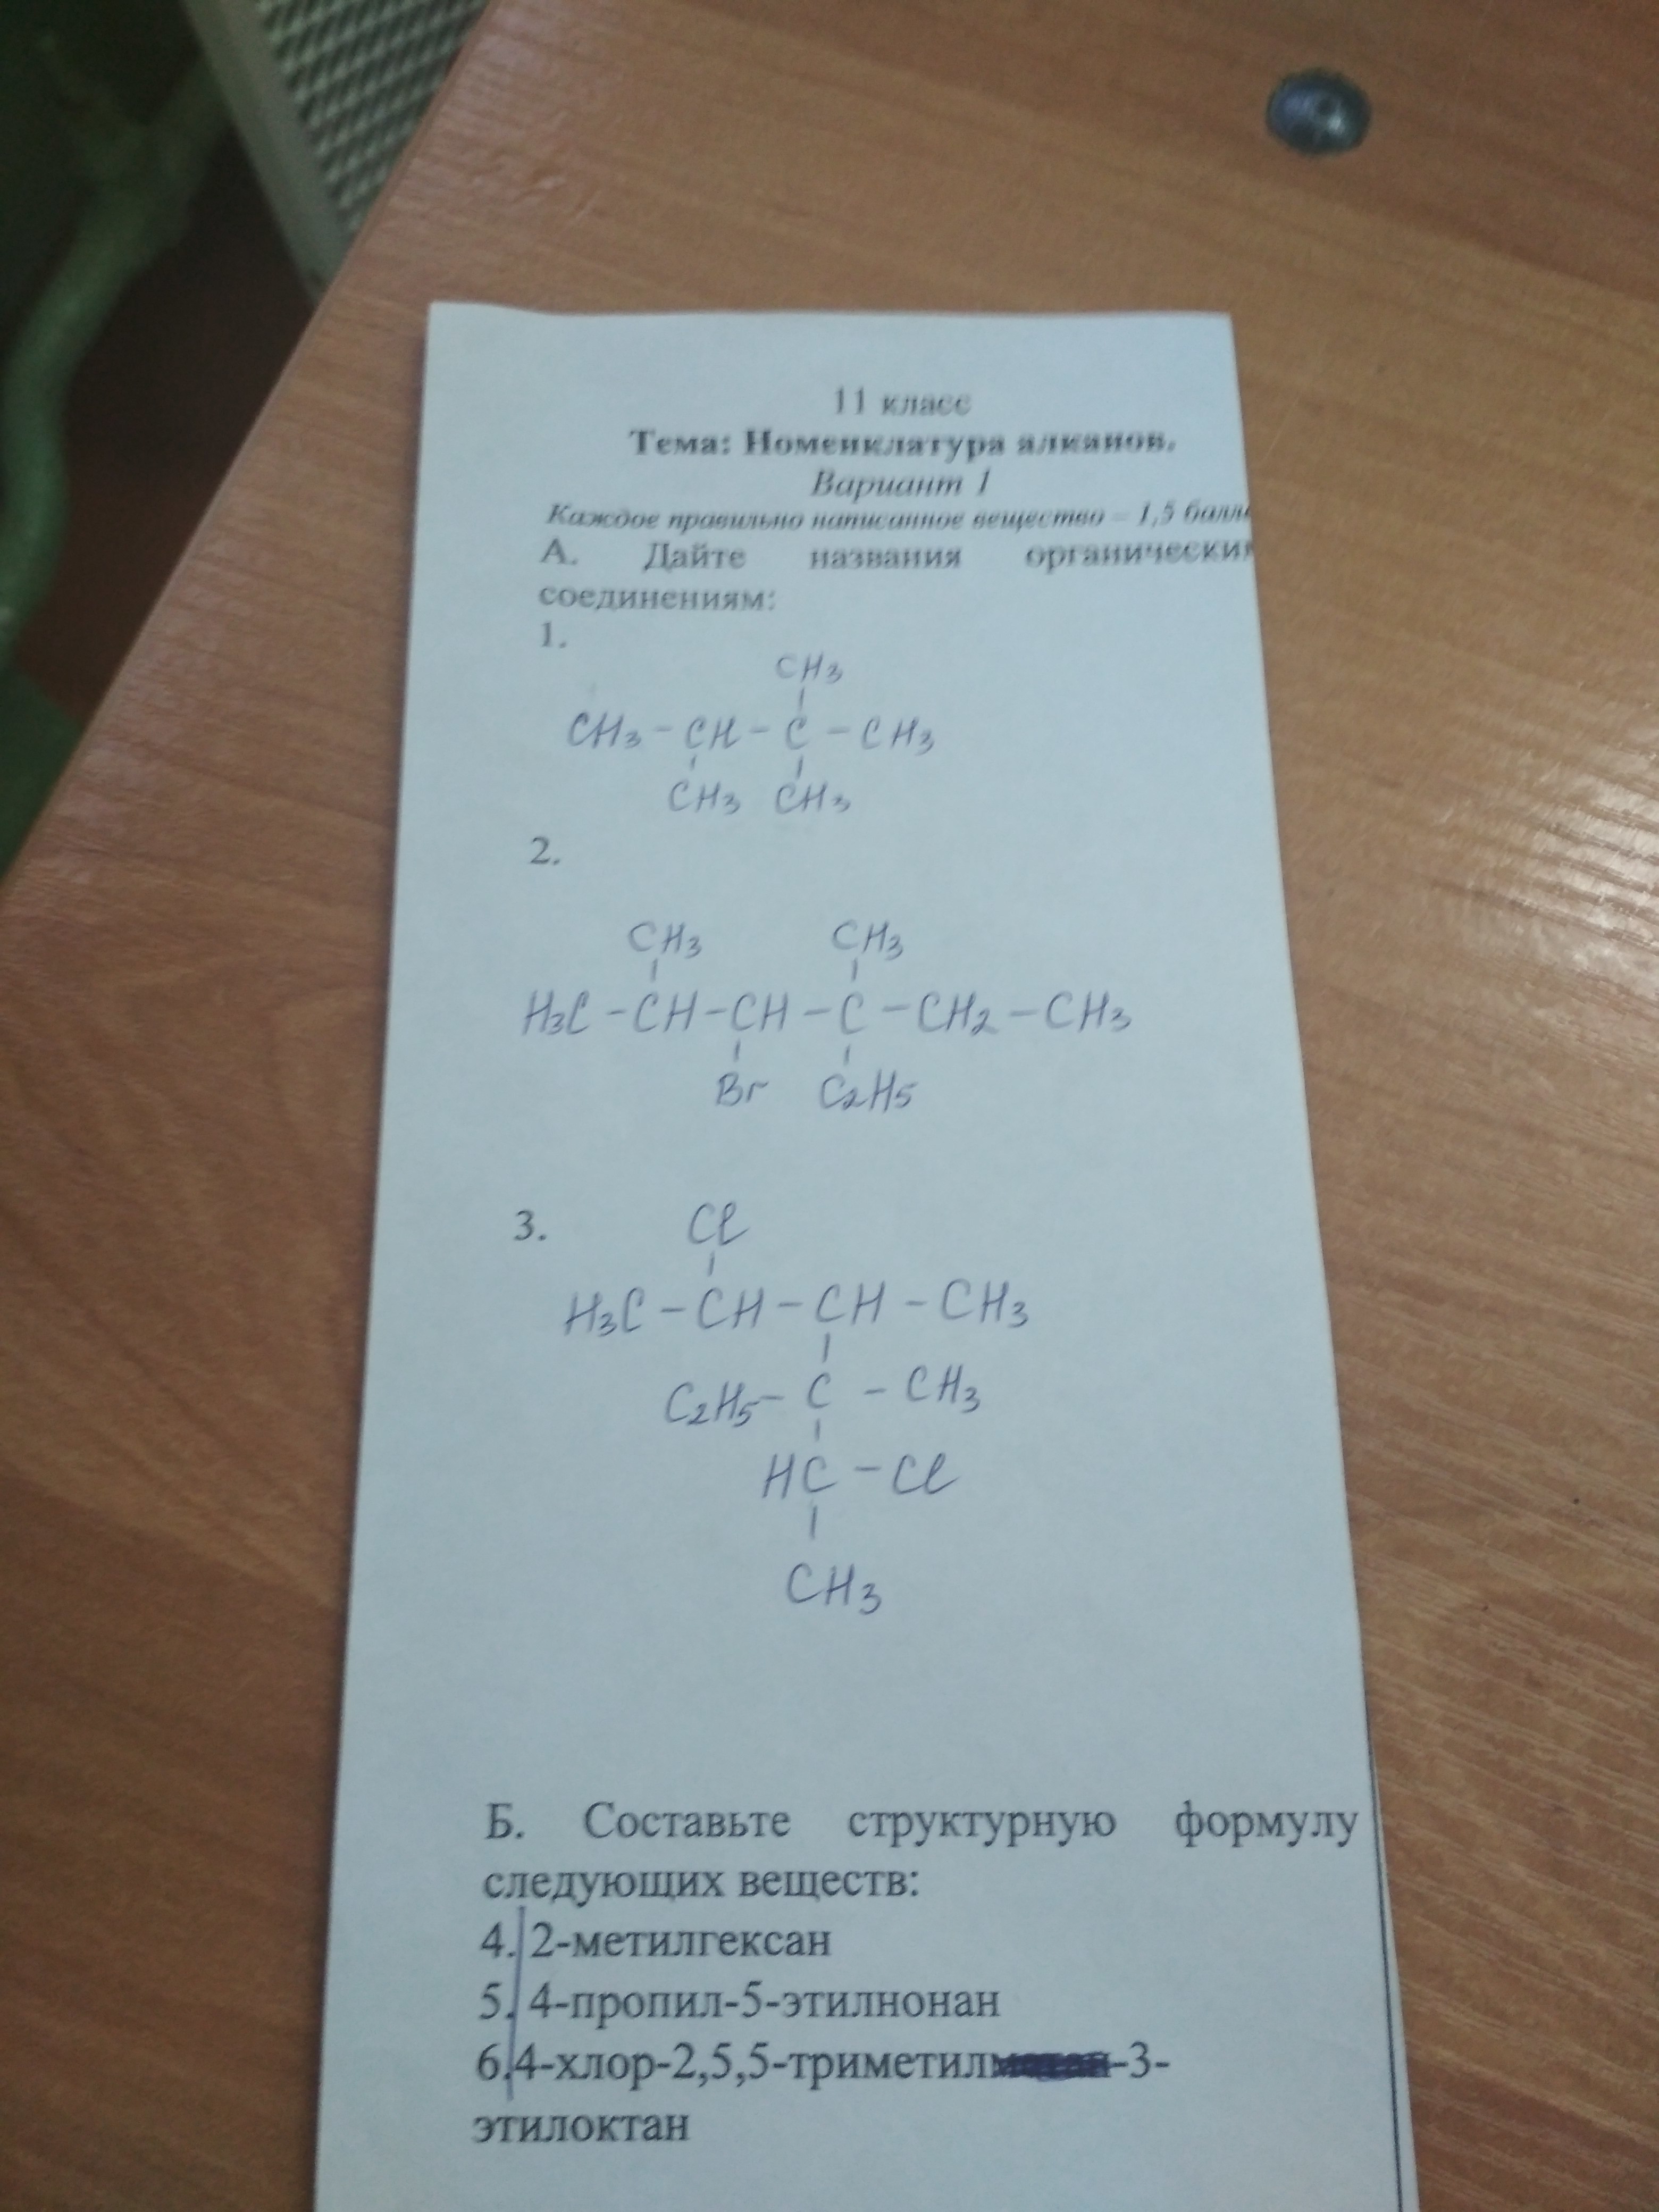 11 класс
Тема: Номенклатура алканов.
Вариант 1
Каждое правильно написанное вещество – 1,5 балл
А. Дайте названия органическим
соединениям:
1.
CH3
CH3 – CH – C – CH3
CH3 CH3
2.
CH3 CH3
H3C – CH – CH – C – CH2 – CH3
Br C2H5
3. Cl
H3C – CH – CH – CH3
C2H5 – C – CH3
HC – Cl
CH3
Б. Составьте структурную формулу
следующих веществ:
4. 2-метилгексан
5. 4-пропил-5-этилнонан
6. 4-хлор-2,5,5-триметил-3-
этилоктан